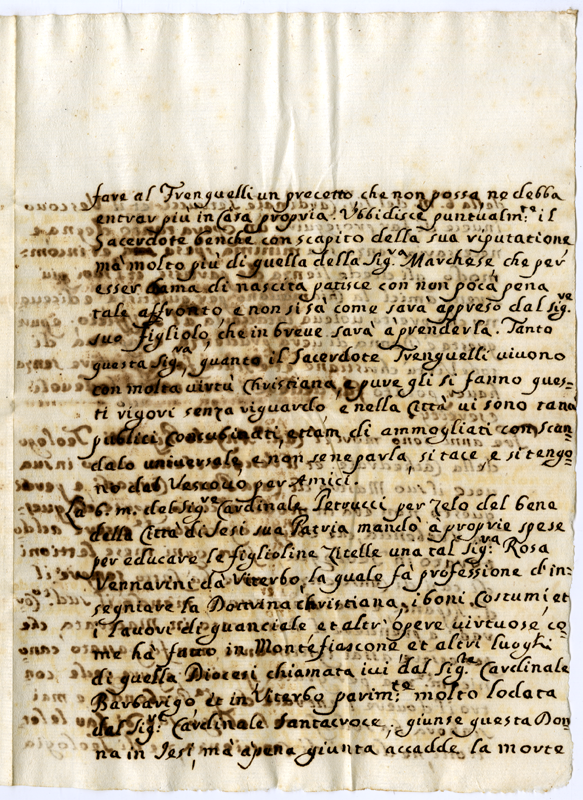 fare al Trenquelli un precetto che non possa ne debba
entrar più in Casa propria. Ubbidisce puntualm:te il
Sacerdote benche con scapito della sua riputatione
mà molto più di quella della Sig:a Marchese, che per
esser Dama di nascita patisce con non poca pena
tale affronto e non si sà come sarà appreso dal Sig:re
suo Figliolo, che in breve sarà a prenderla. Tanto
questa Sig:ra, quanto il Sacerdote Trenquelli vivono
con molta virtù Christiana, e pure gli si fanno ques=
ti rigori senza riguardo, e nella Città vi sono tanti
publici Concubinati, etiam di ammogliati con scan=
dalo universale, e non se ne parla, si tace, e si tengo=
no dal Vescovo per Amici.
La b. m. del Sig:re Cardinale Petrucci per zelo del bene
della Città di Iesi sua Patria mandò à proprie spese
per educare le figlioline Zitelle una tal Sig:ra Rosa
Vennarini da Viterbo, la quale fà professione d'in=
segniare la Dottrina Christiana, i boni Costumi et
i lavori di guanciale et altr' opere virtuose co=
me hà fatto in Montefiascone et altri luoghi
di quella Diocesi chiamata ivi dal Sig:re Cardinale
Barbarigo et in Viterbo parim:te molto lodata
dal Sig:re Cardinale Santacroce; giunse questa Don=
na in Iesi, mà apena giunta accadde la morte